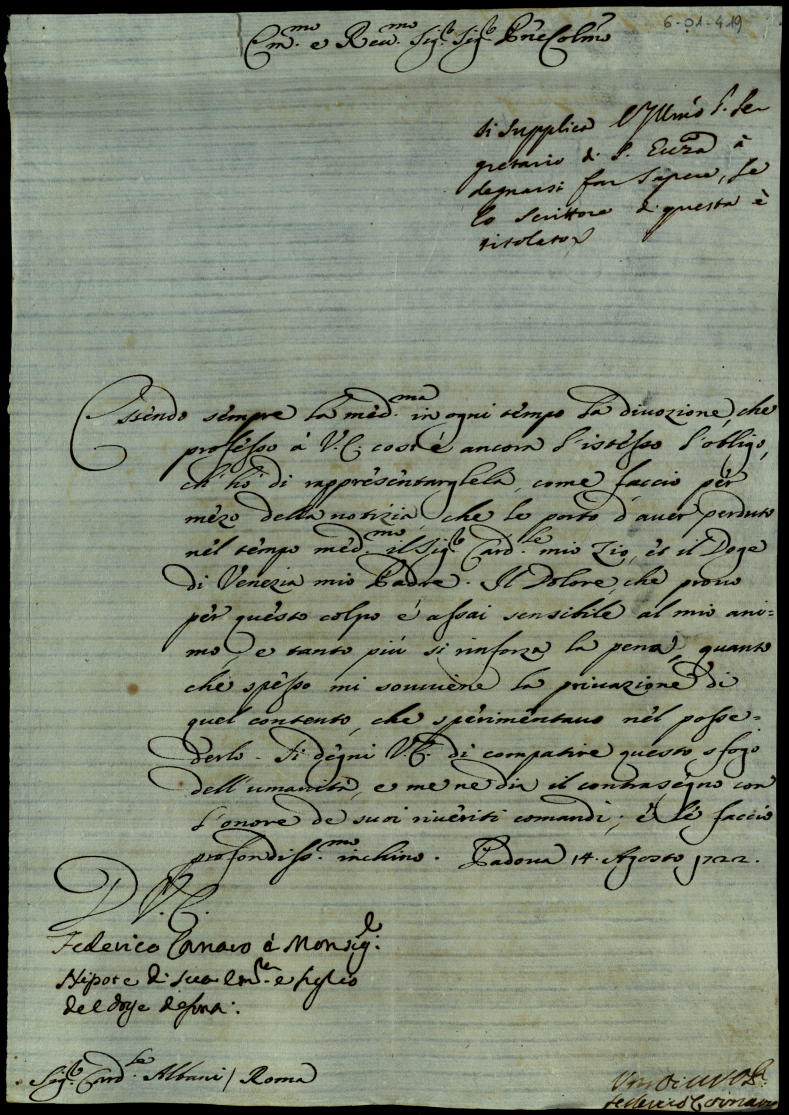 6-01-419
Em.mo e Reu.mo Sig.r Sig.r Pne Colmo
Si supplica l'Illmo S. Se-
gretario di S. Emza à
degnarsi far sapere, se
lo scrittore di questa è
titolato
Essendo sempre la med.ma in ogni tempo la diuozione, che
professo à V.E. cosi è ancora l'istesso l'obligo,
ch'hò di rappresentargliela, come faccio per
mezo della notizia, che le porto d'auer perduto
nel tempo med.mo il Sig.r Card.le mio Zio, et il Doge
di Venezia mio Padre. Il Dolore, che prouo
per questo colpo è assai sensibile al mio ani=
mo, e tanto più si rinforza la pena, quanto
che spesso mi souuiene la priuazione di
quel contento, che sperimentauo nel posse=
derlo. Si degni V.E. di compatire questo sfogo
dell'umanità, e me ne dia il contrasegno con
l'onore de suoi riueriti comandi; e le faccio
profondiss.mo inchino. Padoua 14. Agosto 1722.
D V.E.
Federico Cornaro è Monsig.r
Nipote di sua Em.za e figlio
del doge defon:
Sig.r Card.le Albani / Roma
Federico Cornaro